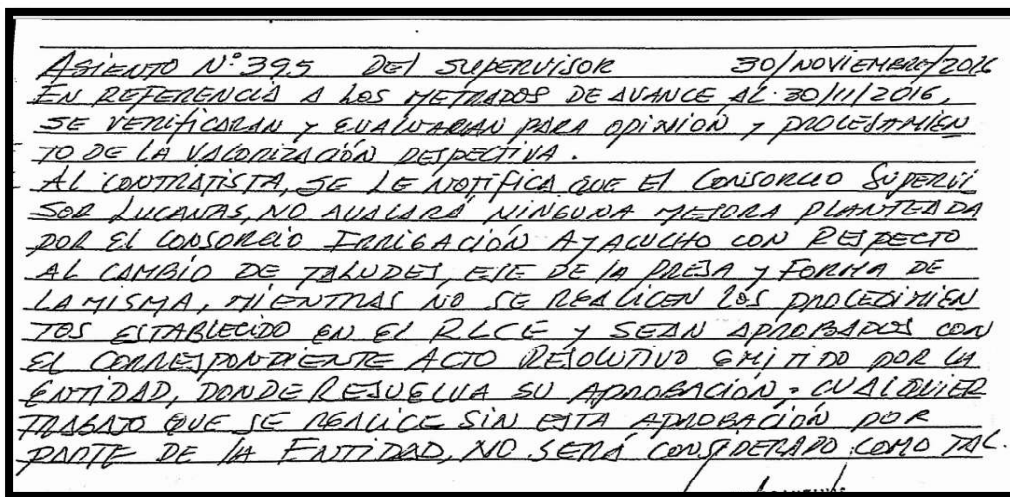 ASIENTO N° 395 DEL SUPERVISOR 30/NOVIEMBRE/2016
EN REFERENCIA A LOS METRADOS DE AVANCE AL 30/11/2016,
SE VERIFICARAN Y EVALUARAN PARA OPINIÓN Y PROCESAMIEN
TO DE LA VALORIZACIÓN RESPECTIVA.
AL CONTRATISTA, SE LE NOTIFICA QUE EL CONSORCIO SUPERVI
SOR LUCANAS, NO AVALARÁ NINGUNA MEJORA PLANTEADA
POR EL CONSORCIO IRRIGACIÓN AYACUCHO CON RESPECTO
AL CAMBIO DE TALUDES, EJE DE LA PRESA Y FORMA DE
LA MISMA, MIENTRAS NO SE REALICEN LOS PROCEDIMIEN
TOS ESTABLECIDO EN EL RLCE Y SEAN APROBADOS CON
EL CORRESPONDIENTE ACTO RESOLUTIVO EMITIDO POR LA
ENTIDAD, DONDE RESUELVA SU APROBACIÓN, CUALQUIER
TRABAJO QUE SE REALICE SIN ESTA APROBACIÓN POR
PARTE DE LA ENTIDAD, NO SERÁ CONSIDERADO COMO TAL.